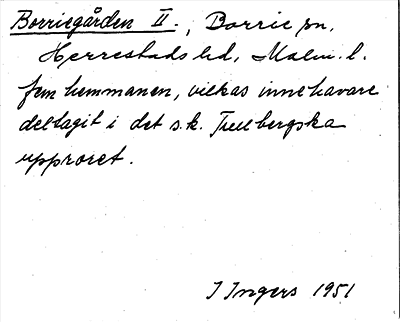 Borriegården II., Borrie sn,
Herrestads hd, Malm. l.
fem hemmanen, vilkas innehavare
deltagit i det s.k. Tullbergska
upproret.
I Ingers 1951